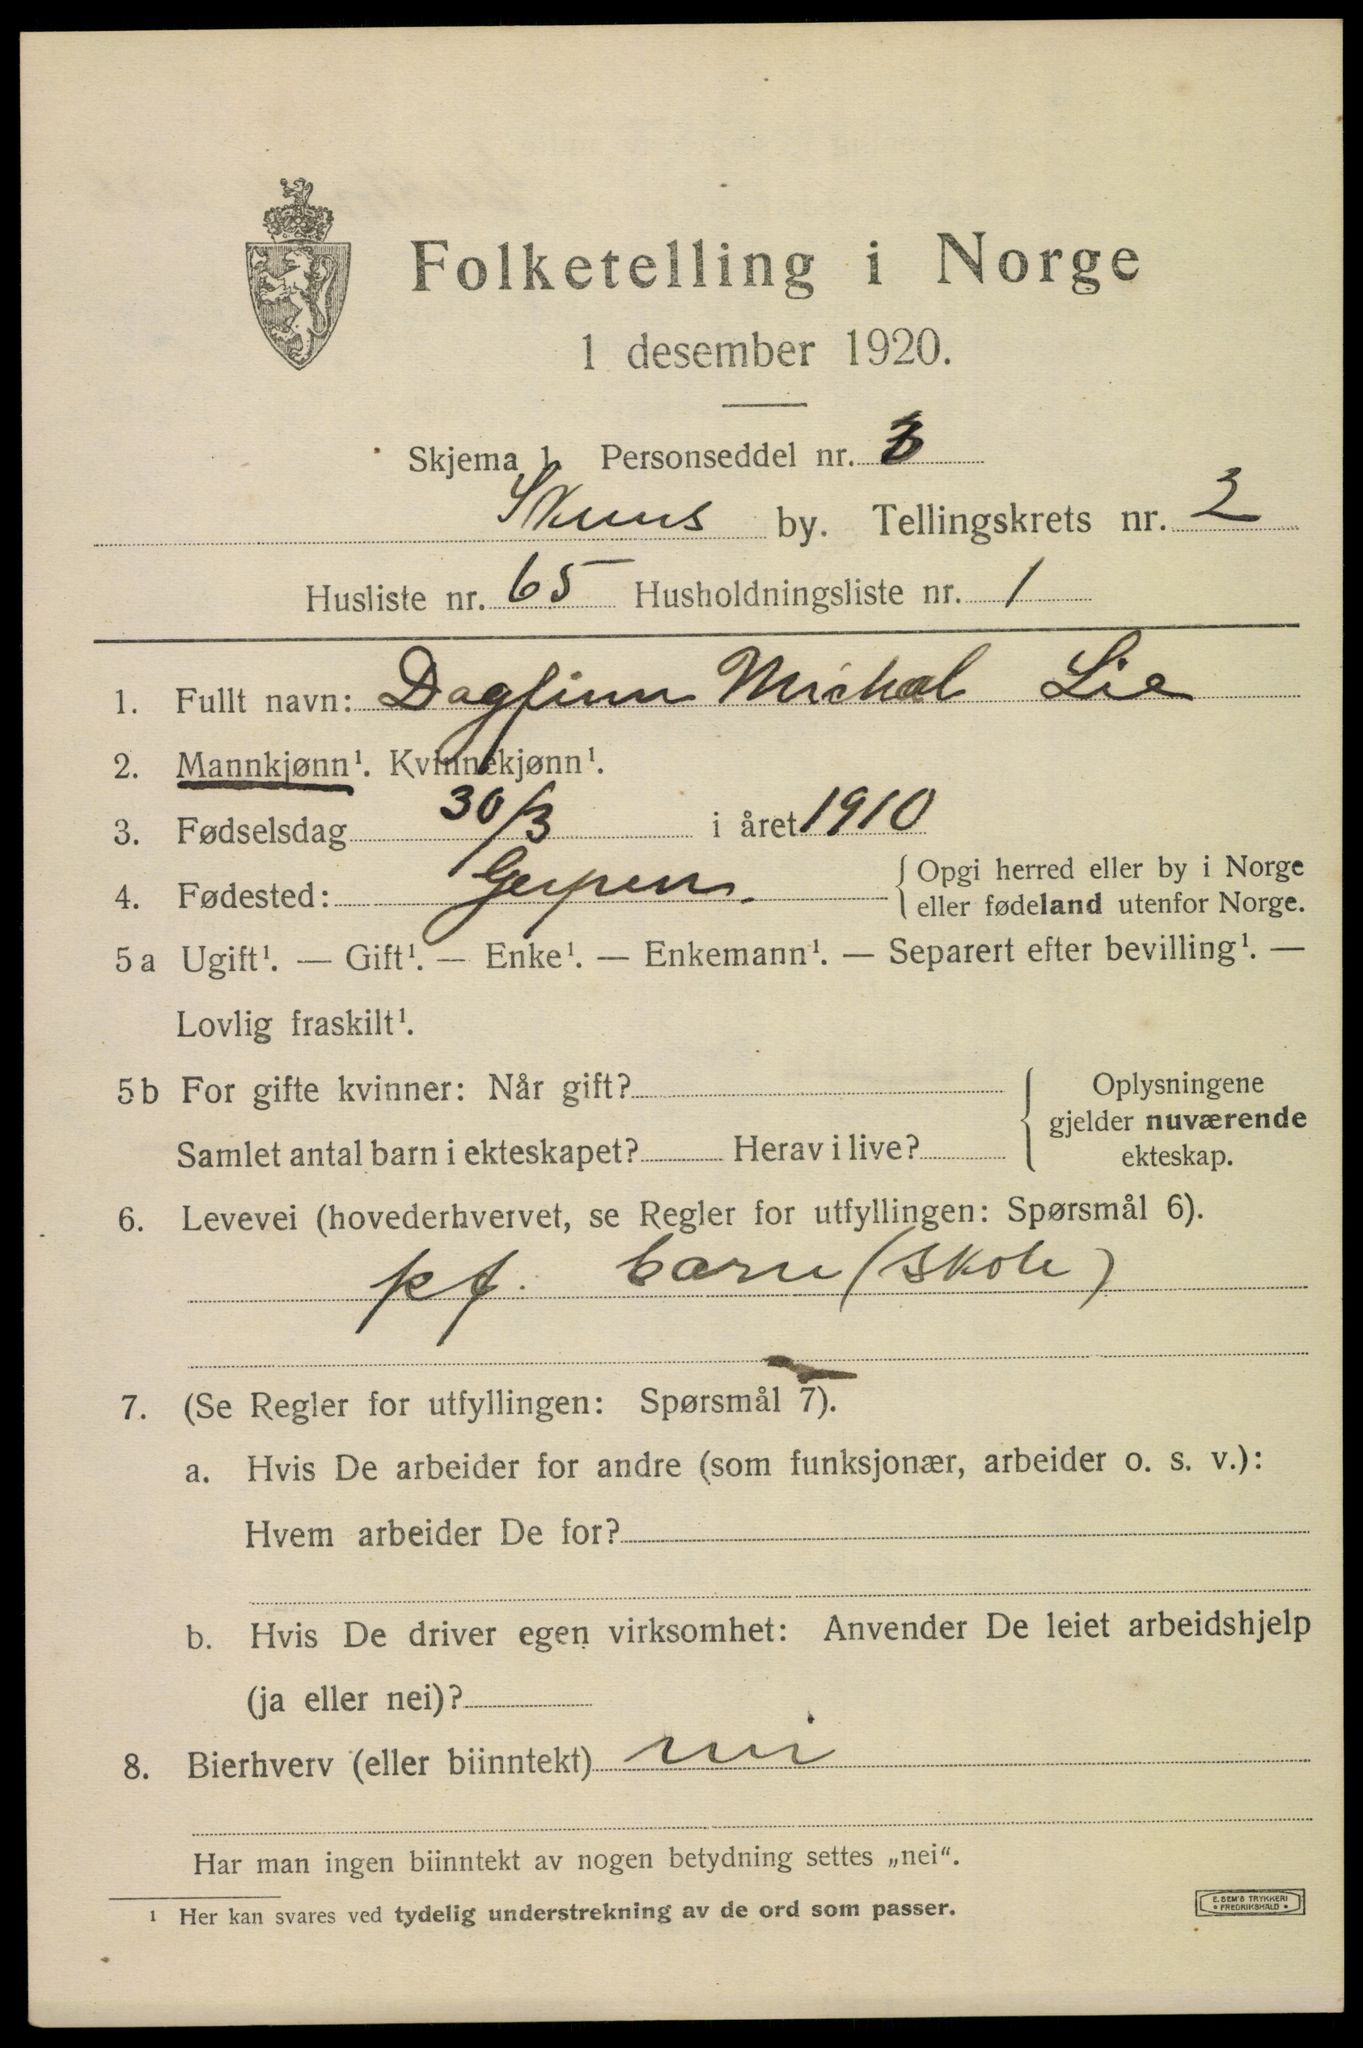 Folketelling i Norge
1 desember 1920.
Skjema 1. Personseddel nr. 3
Skiens by. Tellingskrets nr. 2
Husliste nr. 65 Husholdningsliste nr. 1
1. Fullt navn: Dagfinn Michael Lie
2. Mannkjønn¹. Kvinnekjønn¹.
3. Fødselsdag 30/3 i året 1910
4. Fødested: Gerpen. { Opgi herred eller by i Norge
eller fødeland utenfor Norge.
5a Ugift¹. — Gift¹. — Enke¹. — Enkemann¹. — Separert efter bevilling¹. —
Lovlig fraskilt¹.
5b For gifte kvinner: Når gift? { Oplysningene
gjelder nuværende
Samlet antal barn i ekteskapet? Herav i live? ekteskap.
6. Levevei (hovederhvervet, se Regler for utfyllingen: Spørsmål 6).
pf. barn (skole)
7. (Se Regler for utfyllingen: Spørsmål 7).
a. Hvis De arbeider for andre (som funksjonær, arbeider o. s. v.):
Hvem arbeider De for?
b. Hvis De driver egen virksomhet: Anvender De leiet arbeidshjelp
(ja eller nei)?
8. Bierhverv (eller biinntekt) nei
Har man ingen biinntekt av nogen betydning settes „nei“.
¹ Her kan svares ved tydelig understrekning av de ord som passer.
E. SEM'S TRYKKERI
FREDRIKSHALD